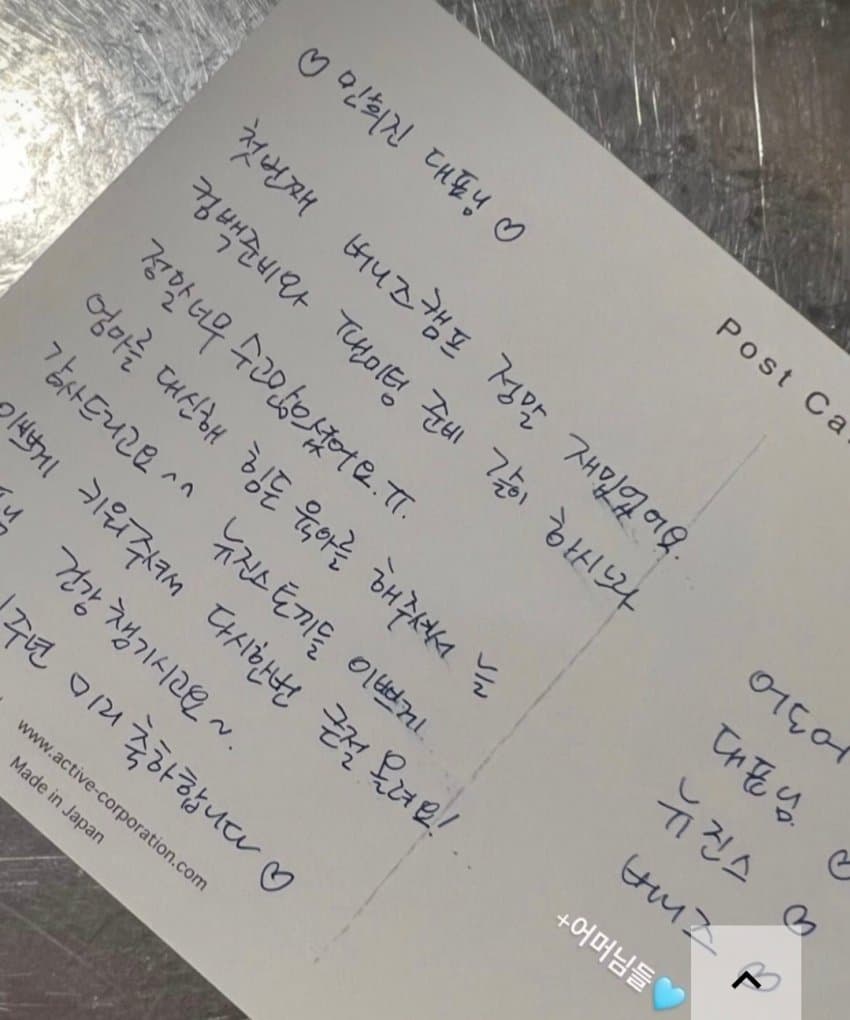 ♡ 민희진 대표님 ♡
첫번째 버니즈캠프 정말 재밌었어요.
컴백준비와 팬미팅 준비 같이 하시느라
정말 너무 수고많으셨어요.ㅠ.
엄마를 대신해 힘든 육아를 해주셔서 늘
감사드리고요^^ 뉴진스토끼들 이쁘게
이쁘게 키워주셔서 다시한번 큰절 올려요!
건강 챙기시고요~.
1주년 미리 축하합니다 ♡
Post Ca
어도어
대표님
뉴진스 ♡
버니즈 ♡
♡
www.active-corporation.com
Made in Japan
+어머님들🩵